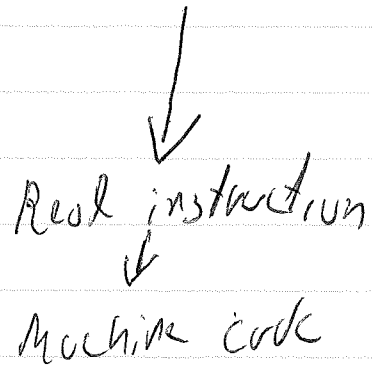 Real instruction
Machine code